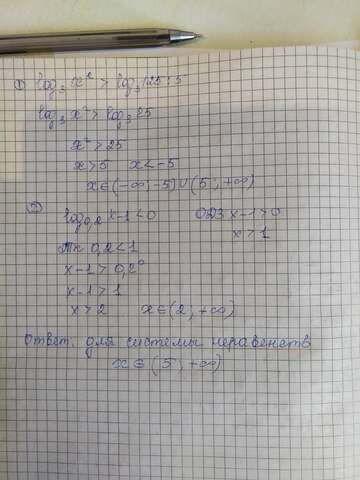 ① log₃ x² > log₃ 125:5
log₃ x² > log₃ 25
x² > 25
x > 5 x < -5
x ∈ (-∞; -5) ∪ (5; +∞)
② log₀,₂ x-1 < 0 ОДЗ x-1 > 0
x > 1
Тк 0,2 < 1
x-1 > 0,2⁰
x-1 > 1
x > 2 x ∈ (2; +∞)
Ответ: для системы неравенств
x ∈ (5; +∞)